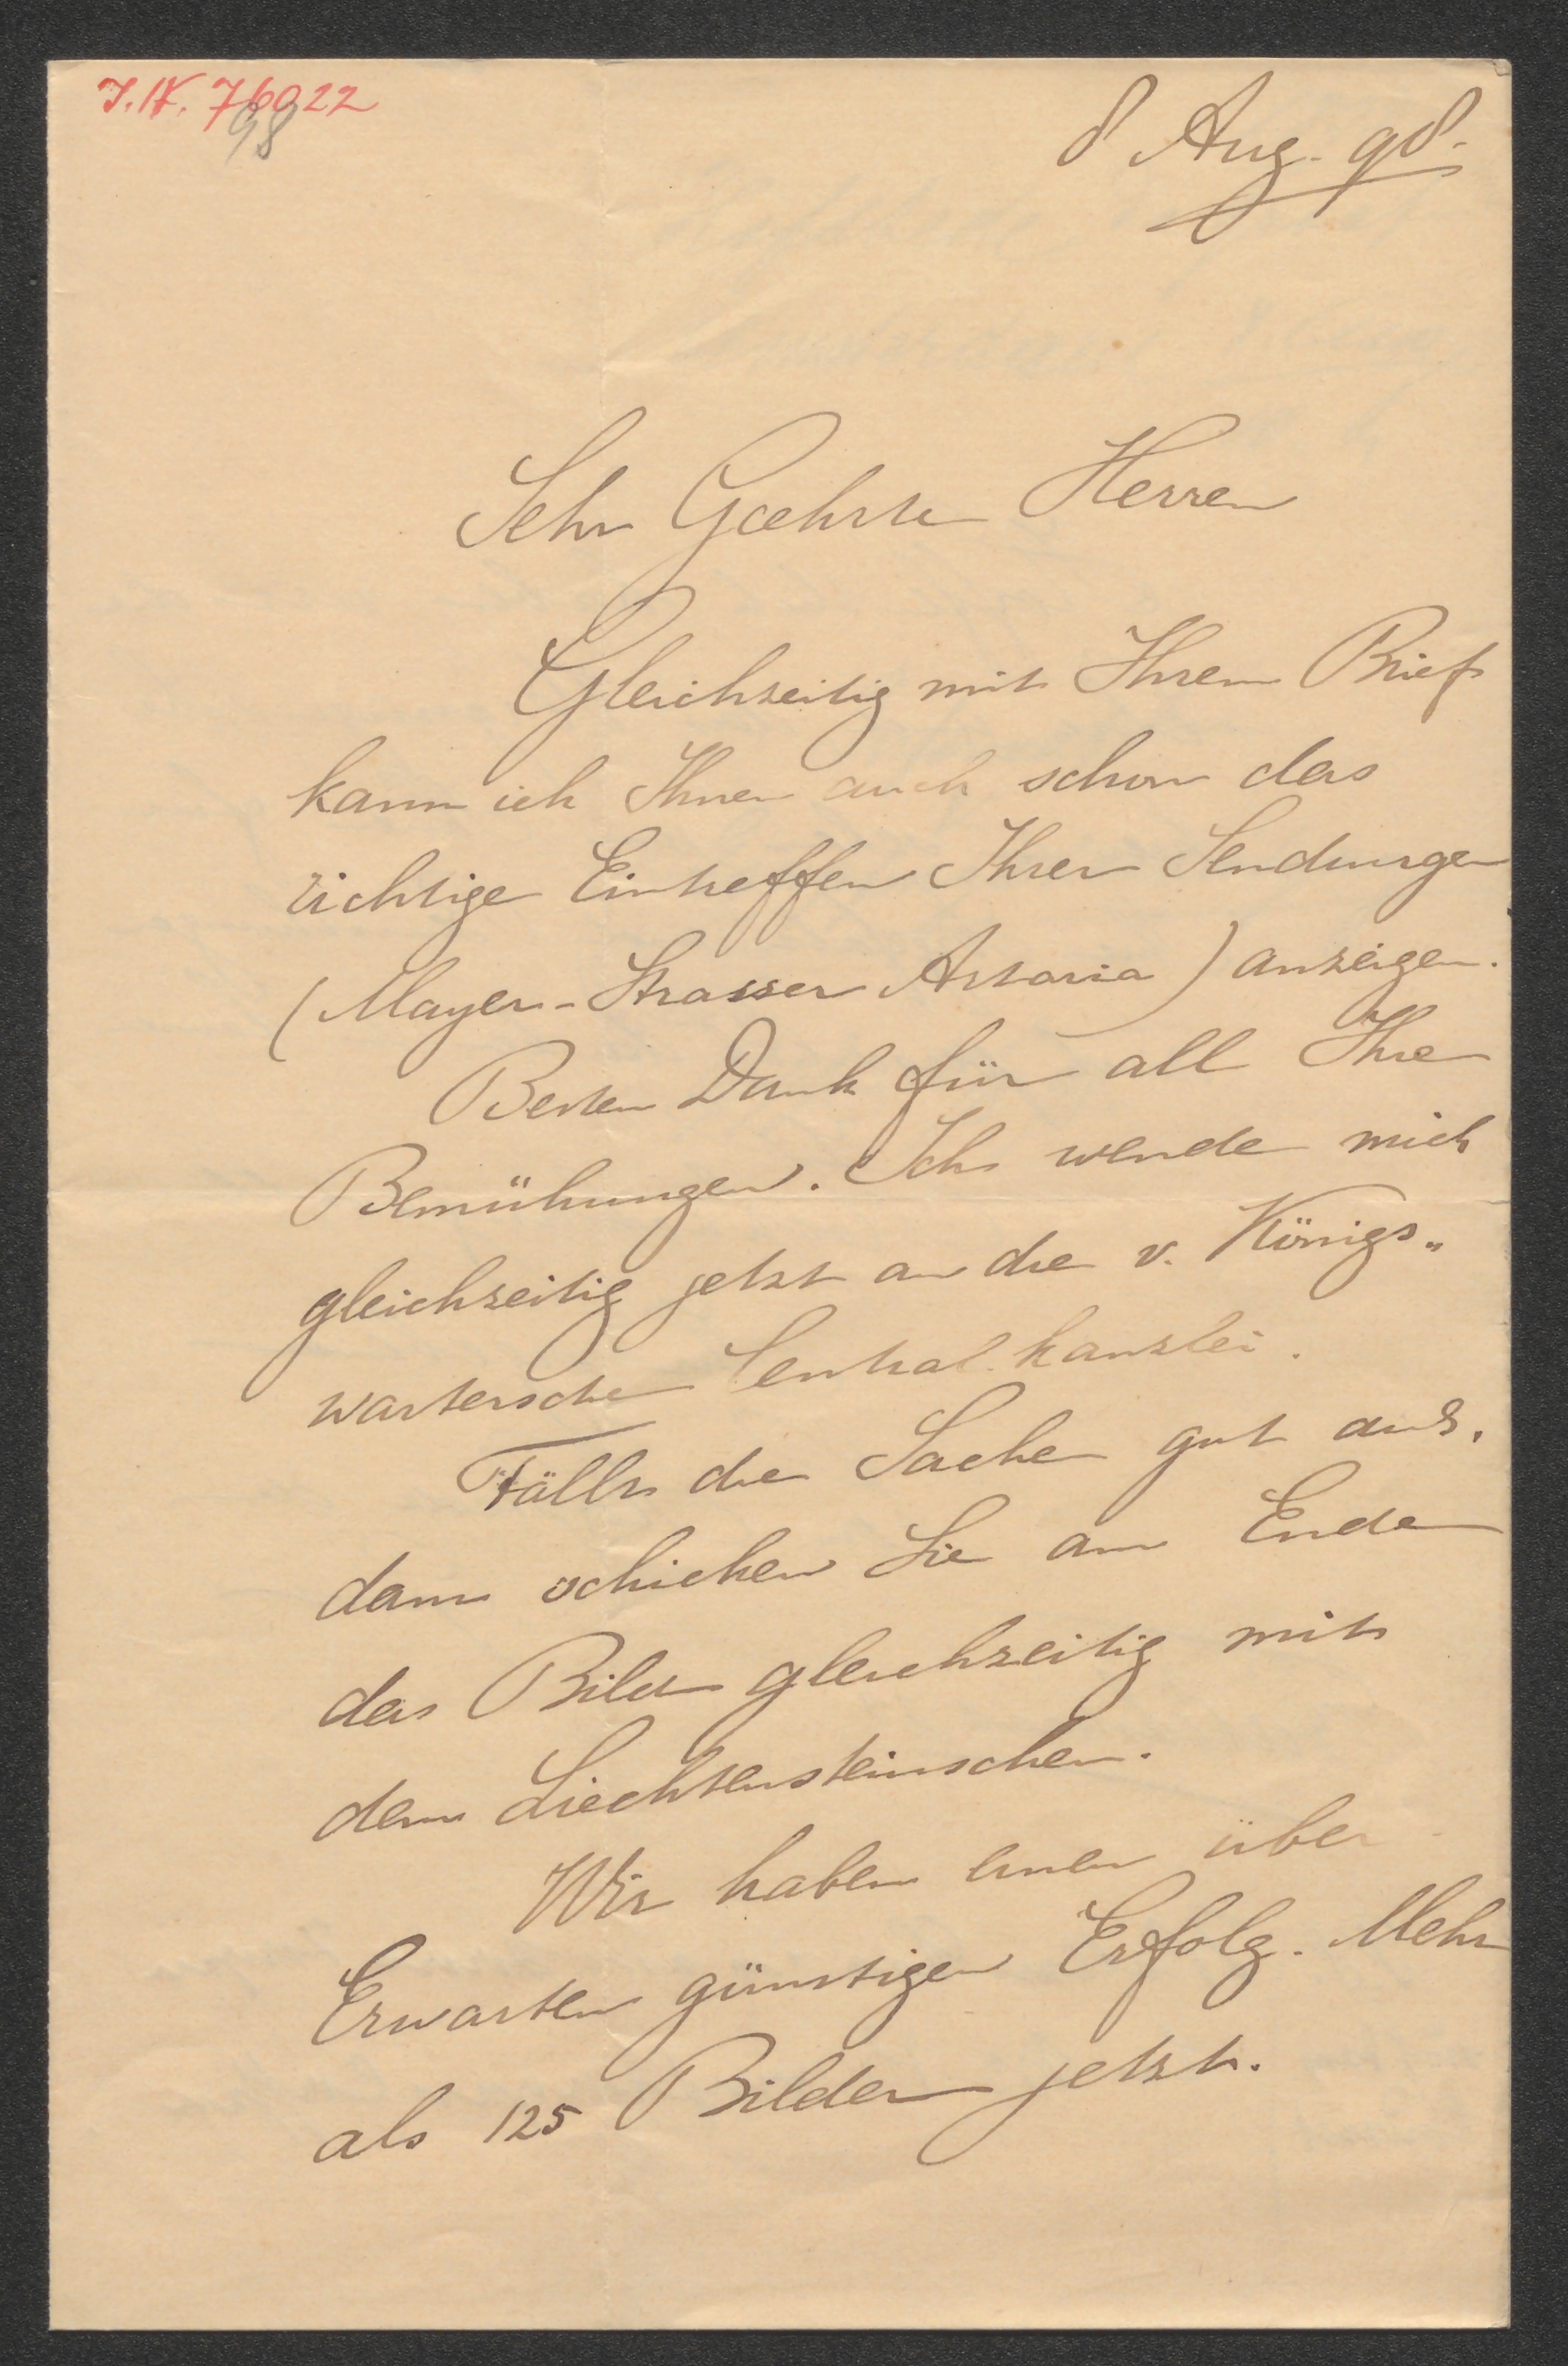 J.N. 76022
98
8 Aug. 98.
Sehr Geehrte Herren
Gleichzeitig mit Ihrem Brief
kann ich Ihnen auch schon das
richtige Eintreffen Ihrer Sendungen
(Mayer-Strasser Artaria) anzeigen.
Besten Dank für all Ihre
Bemühungen. Ich wende mich
gleichzeitig jetzt an die v. Königs„
wartersche Centralkanzlei.
Fällt die Sache gut aus,
dann schicken Sie am Ende
das Bild gleichzeitig mit
dem Liechtensteinschen.
Wir haben einen über
Erwarten günstigen Erfolg. Mehr
als 125 Bilder jetzt.